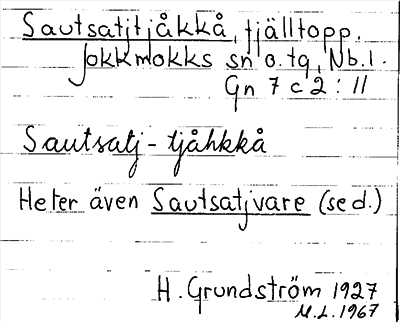 Sautsatjtjåkkå, fjälltopp.
Jokkmokks sn o. tg, Nb. l.
Gn 7 c 2 : 11
Sautsatj - tjåhkkå
Heter även Sautsatjvare (se d.)
H. Grundström 1927
M. L. 1967